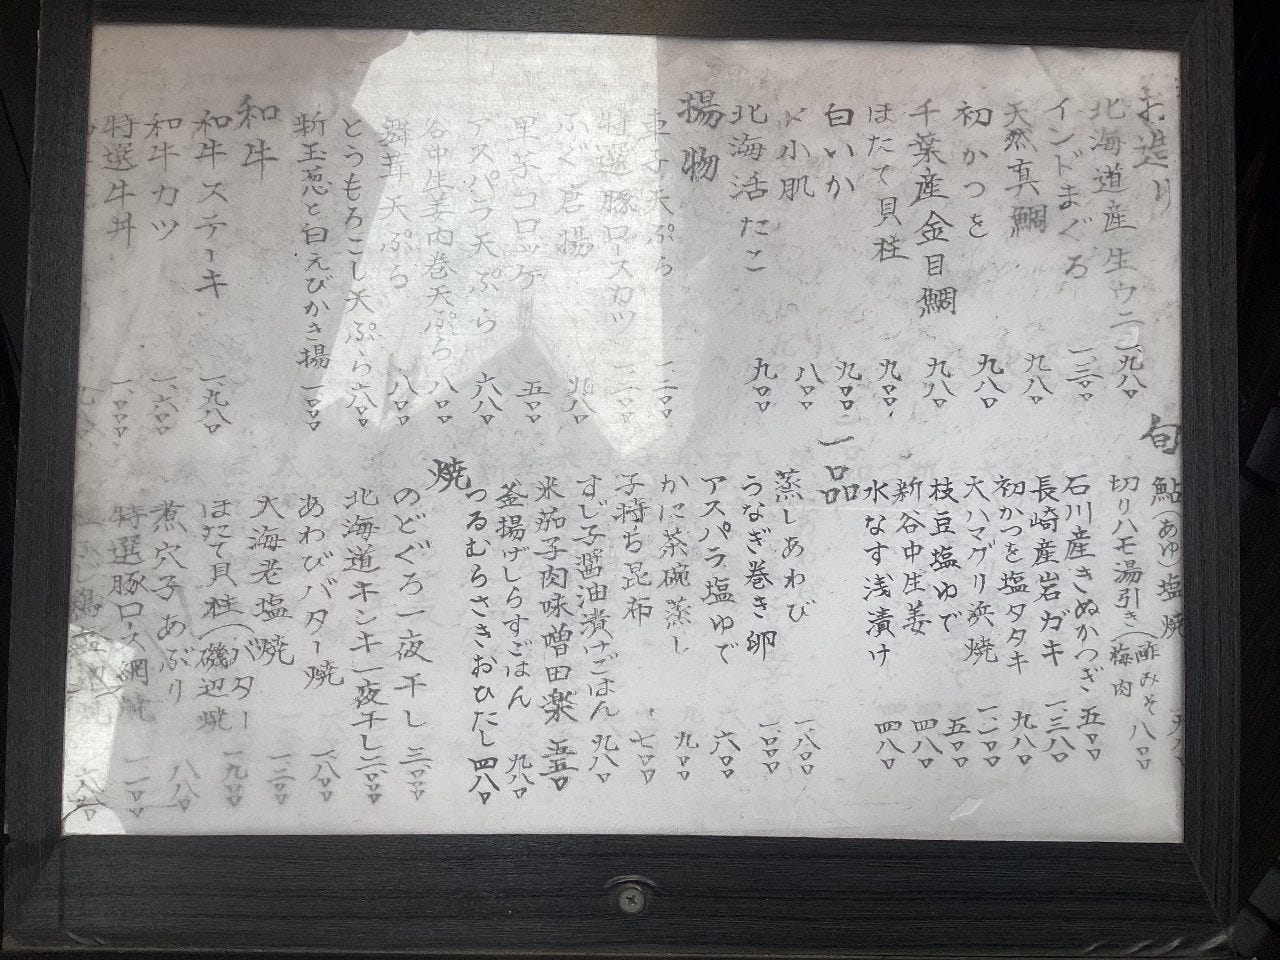 お造り
北海道産生ウニ 一、九八〇
インドまぐろ 一、三〇〇
天然真鯛 九八〇
初かつを 九八〇
千葉産金目鯛 九八〇
ほたて貝柱 九〇〇
白いか 九〇〇
小肌 八〇〇
北海活たこ 九〇〇
揚物
天ぷら 一、二〇〇
特選豚ロースカツ 一、二〇〇
ふぐ唐揚 九八〇
里芋コロッケ 五〇〇
アスパラ天ぷら 六八〇
谷中生姜肉巻天ぷら 八〇〇
舞茸天ぷら 八〇〇
とうもろこし天ぷら 六八〇
新玉葱と白えびかき揚 一、〇〇〇
和牛
和牛ステーキ 一、九八〇
和牛カツ 一、六〇〇
特選牛丼 一、〇〇〇
旬
鮎(あゆ)塩焼
切りハモ湯引き(酢みそ 梅肉 八〇〇
石川産きぬかつぎ 五〇〇
長崎産岩ガキ 一、三八〇
初かつを塩タタキ 九八〇
大ハマグリ浜焼 一、二〇〇
枝豆塩ゆで 五〇〇
新谷中生姜 四八〇
水なす浅漬け 四八〇
一品
蒸しあわび 一、八〇〇
うなぎ巻き卵 一、〇〇〇
アスパラ塩ゆで 六〇〇
かに茶碗蒸し 九〇〇
子持ち昆布 七〇〇
すじ子醤油漬けごはん 九八〇
米茄子肉味噌田楽 五五〇
釜揚げしらすごはん 九八〇
つるむらさきおひたし 四八〇
焼
のどぐろ一夜干し 三、〇〇〇
北海道キンキ一夜干し 二、〇〇〇
あわびバター焼 一、八〇〇
大海老塩焼 一、二〇〇
ほたて貝柱(バター 磯辺焼 一、九〇〇
煮穴子あぶり 八八〇
特選豚ロース網焼 一、二〇〇